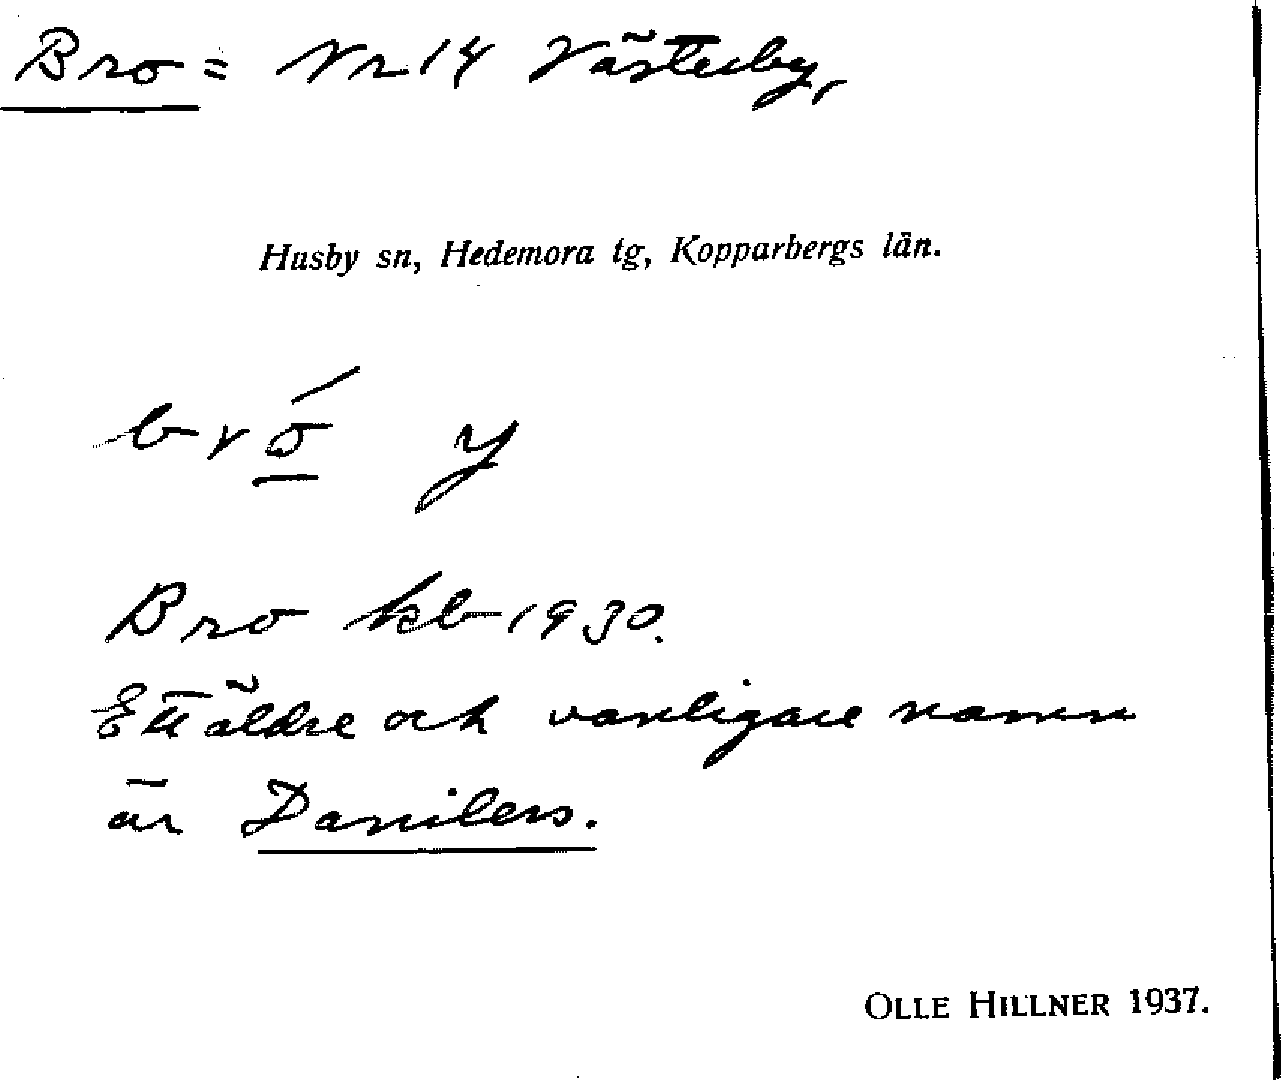 Bro = Nr 14 Västerby,
Husby sn, Hedemora tg, Kopparbergs län.
bró y
Bro kb 1930.
Ett äldre och vanligare namn
är Danilers.
OLLE HILLNER 1937.